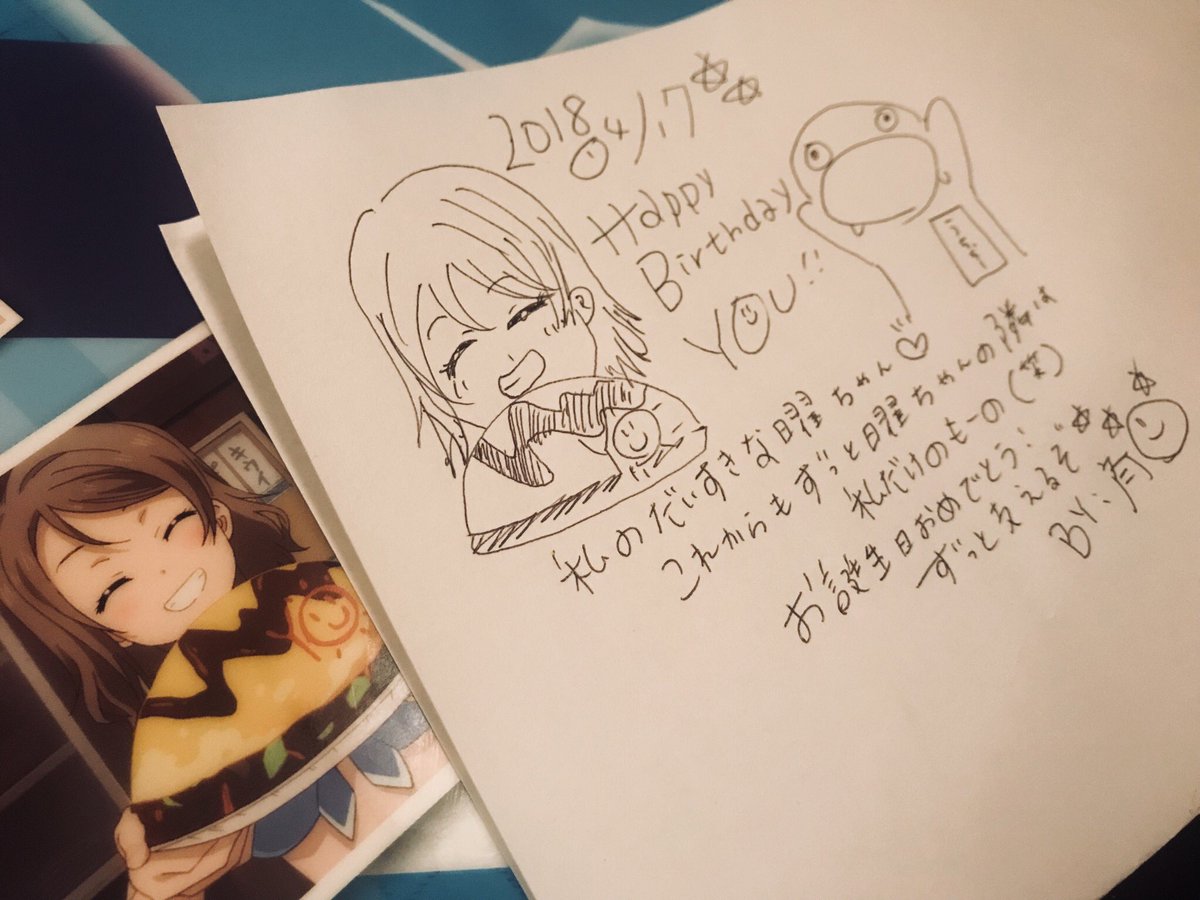 2018 4/17
Happy
Birthday
YOU!!
うちっちー
私のだいすきな曜ちゃん♡
これからもずっと曜ちゃんの隣は
私だけのもーの(笑)
お誕生日おめでとう!
ずっと支えるぞ
BY:
キウイ